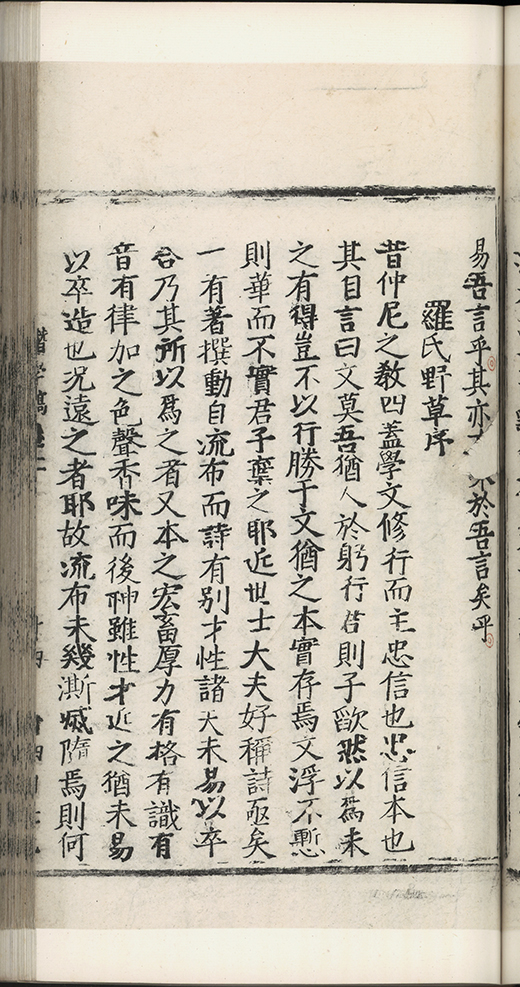 易吾言乎其亦 於吾言矣乎
羅氏野草序
昔仲尼之敎四蓋學文修行而主忠信也忠信本也
其自言曰文莫吾猶人於躬行君則子歐然以爲未
之有得豈不以行勝于文猶之本實存焉文浮不慙
則華而不實君子棄之耶近世士大夫好稱詩亟矣
一有著撰動自流布而詩有别才性諸天未易以卒
合乃其所以爲之者又本之宏畜厚力有格有識有
音有律加之色聲香味而後神雖性才近之猶未易
以卒造也况遠之者耶故流布未幾澌烕隋焉則何